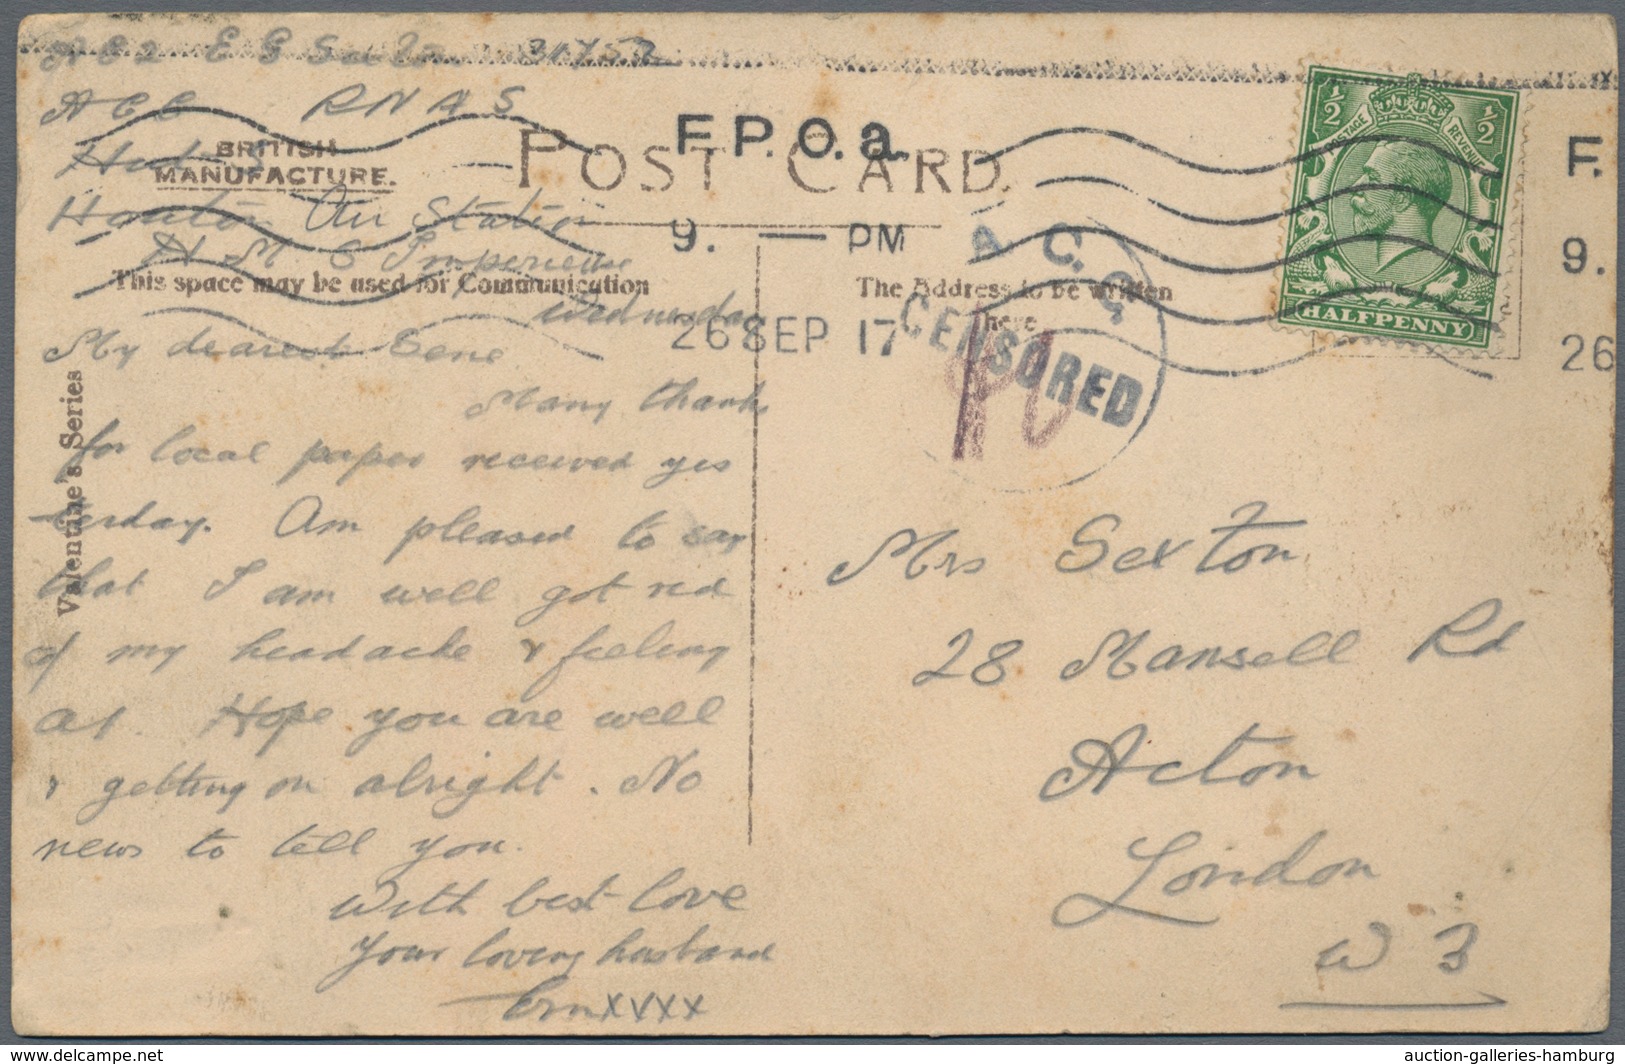 AC2 E G Sexton 31757
ACC RNAS
BRITISH
MANUFACTURE.
Houton Air Station
H M S Imperieuse
POST CARD.
F.P.O.a.
9. — PM
26 SEP 17
F.
9.
26
A C. G.
CENSORED
½ ½
POSTAGE REVENUE
HALFPENNY
This space may be used for Communication
The Address to be written
here
Valentine's Series
Wednesday
My dearest Gene
Many thanks
for local paper received yes
terday. Am pleased to say
that I am well got rid
of my headache & feeling
A1. Hope you are well
& getting on alright. No
news to tell you.
With best love
Your loving husband
Ern xvxx
Mrs Sexton
28 Mansell Rd
Acton
London
W 3
www.delcampe.net
auction-galleries-hamburg